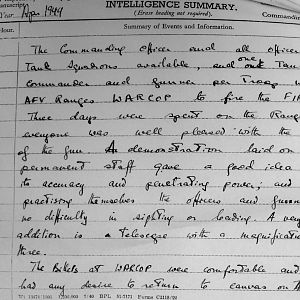 manuscript.
INTELLIGENCE SUMMARY.
(Erase heading not required).
Commanding
Year Apr 1944
Hour.
Summary of Events and Information.
The Commanding Officer and all officers
Tank Squadrons available, and one Tank
commander and gunner per Troop
AFV Ranges WARCOP to fire the
Three days were spent on the Range
everyone was well pleased with the
of the gun. A demonstration laid on
permanent staff gave a good idea
to accuracy and penetrating power, and
practising themselves the officers and gunners
no difficulty in sighting or loading. A very
addition is a telescope with a magnification
three.
The Billets at WARCOP were comfortable and
had any desire to return to canvas on